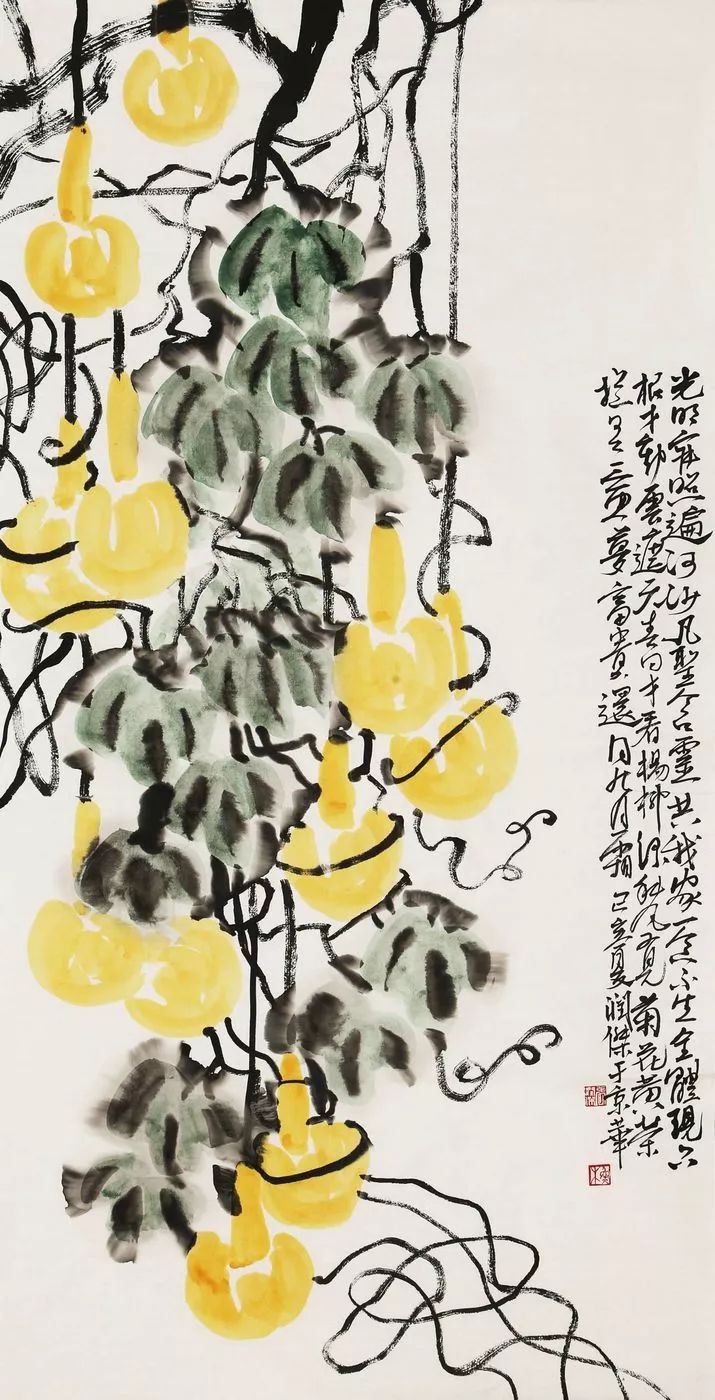 光明寂照遍河沙凡聖含靈共我家一念不生全體現六
根才動雲遮天春日才看楊柳綠秋風又見菊花黃榮
總是三更夢富貴還同九月霜己亥夏潤傑于京華